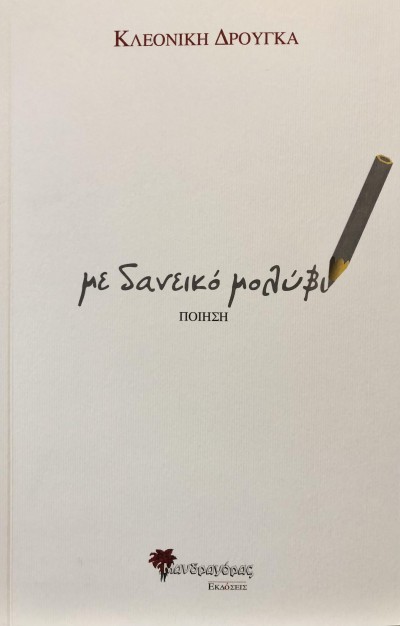 ΚΛΕΟΝΙΚΗ ΔΡΟΥΓΚΑ
με δανεικό μολύβι
ΠΟΙΗΣΗ
μανδραγόρας
ΕΚΔΟΣΕΙΣ